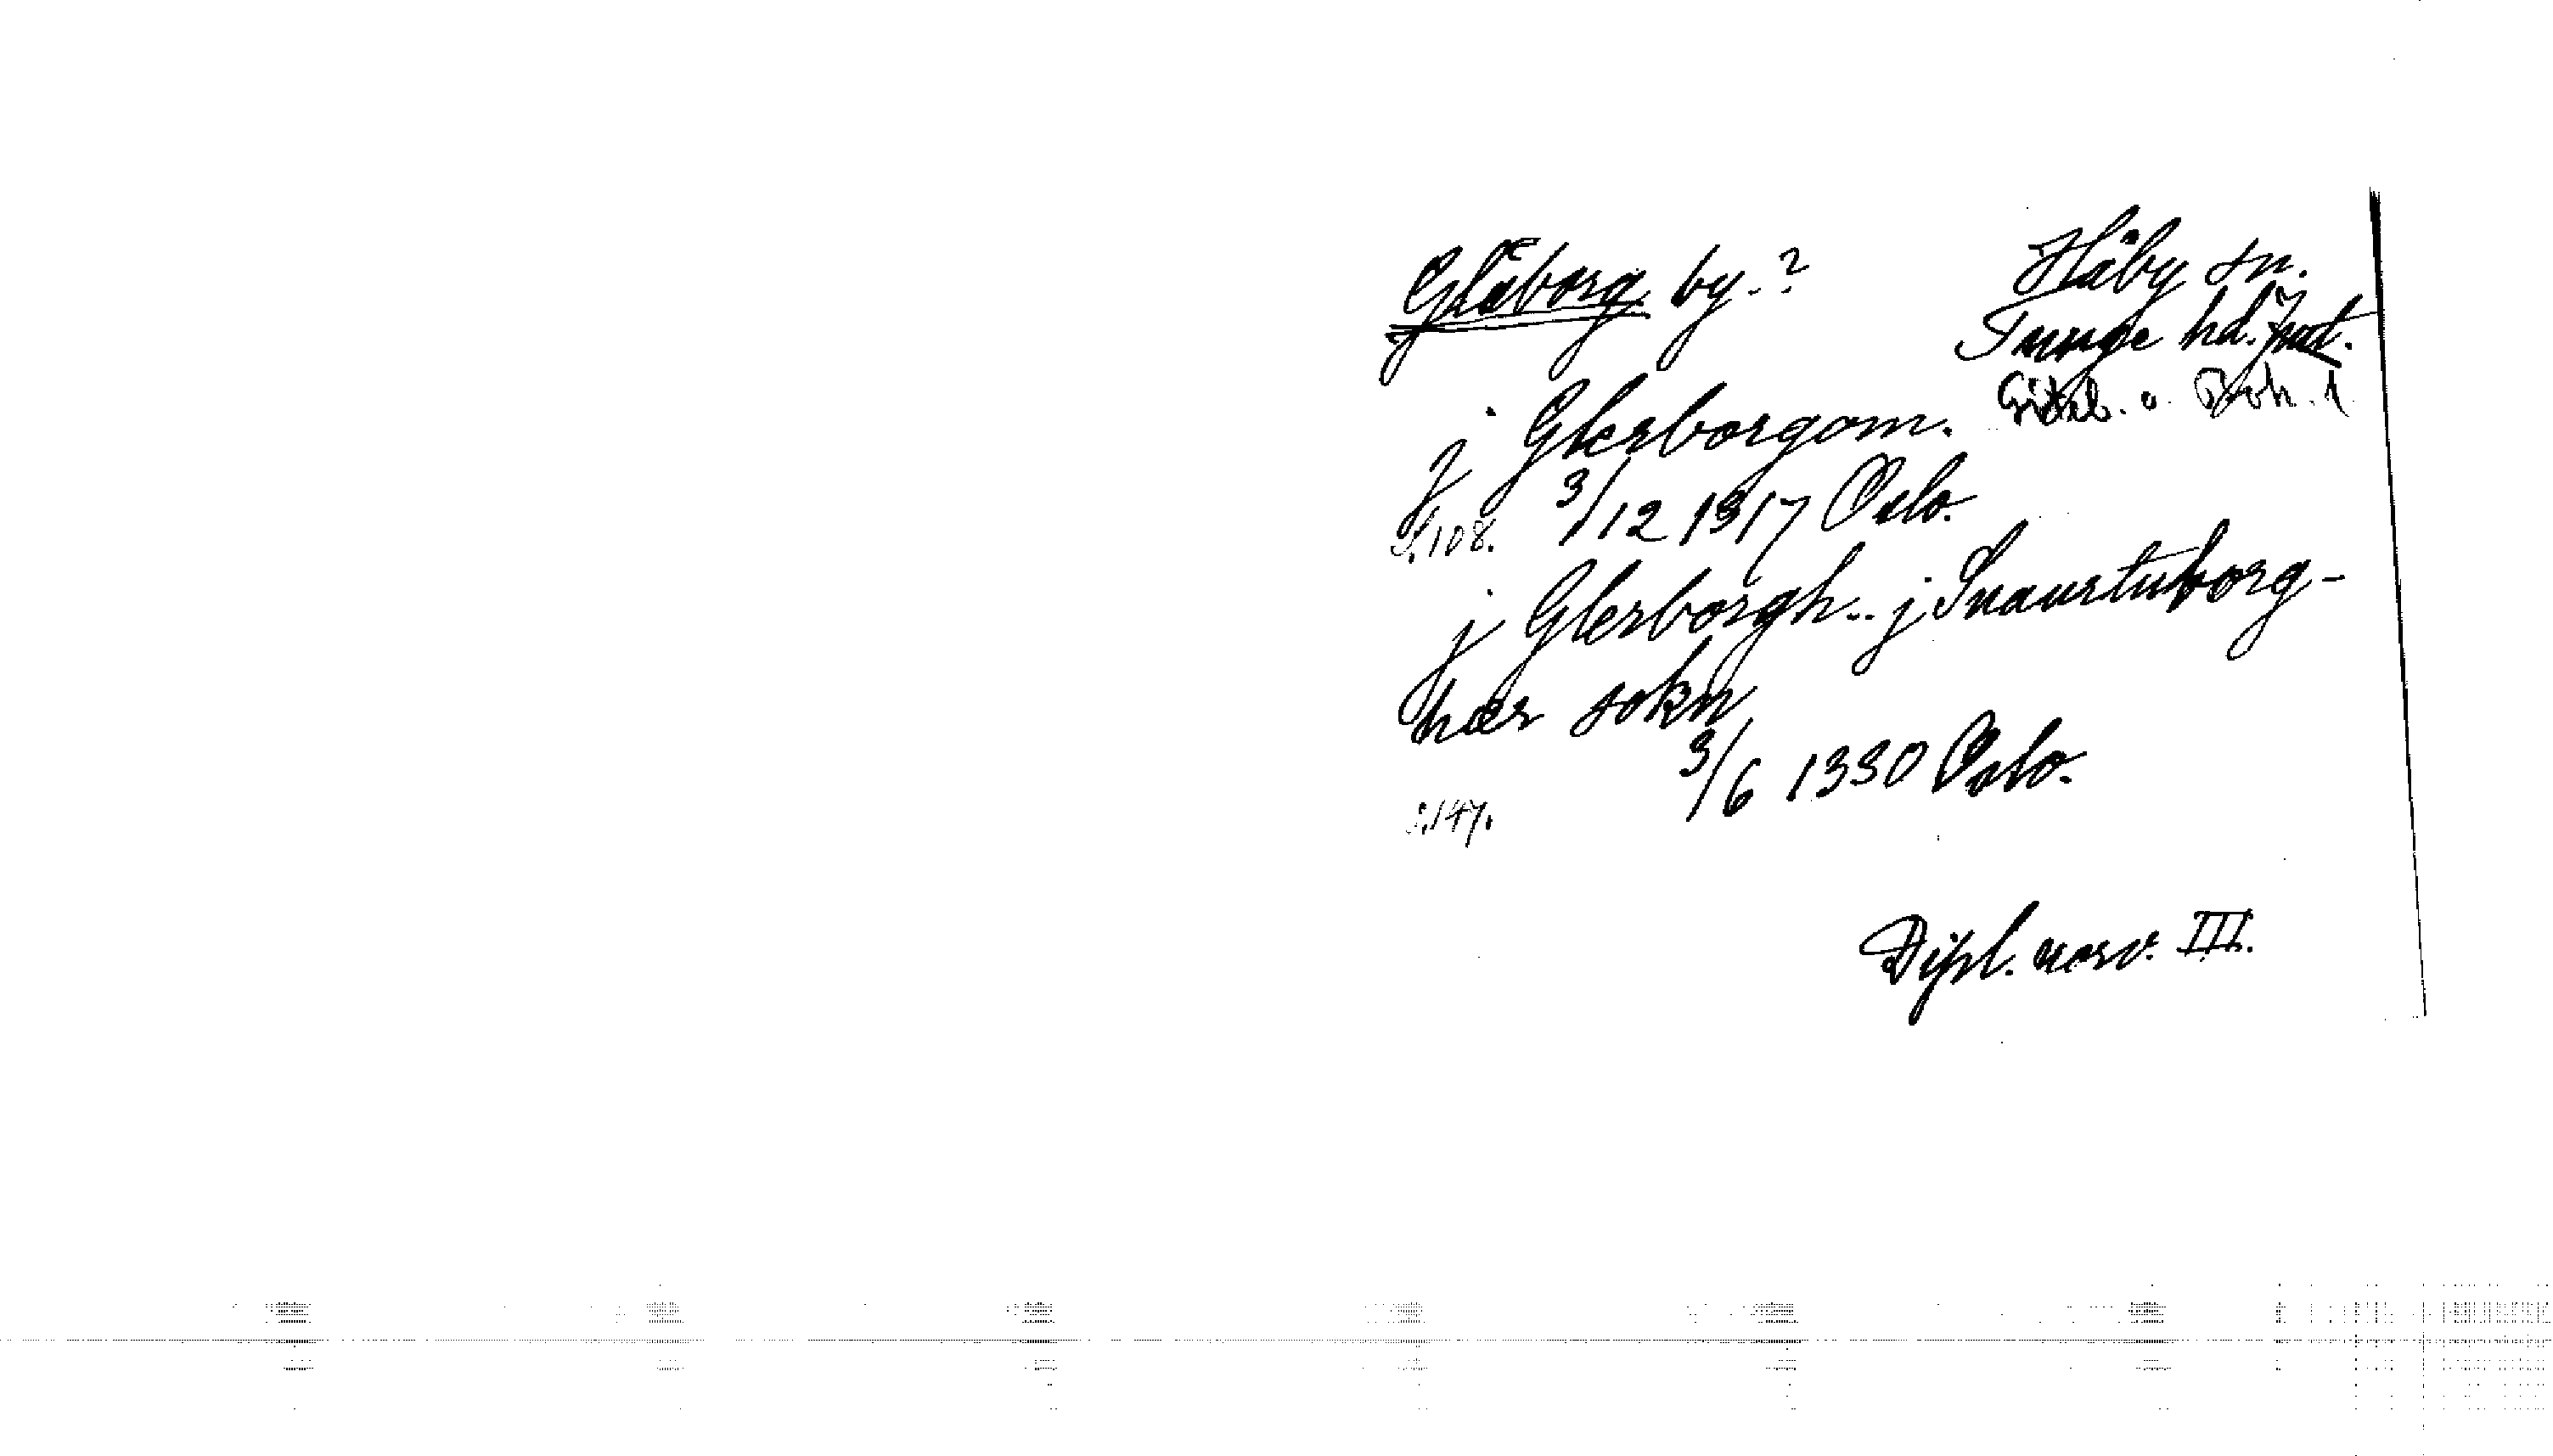 Gläborg by.?
Håby sn.
Tunge hd.
Göteb. o. Boh. l.
j Glerborgom.
S. 108. 3/12 1317 Oslo.
j Glerborgh.. j Suaurtuborg-
hær sokn
3/6 1330 Oslo.
S. 147.
Dipl. norv. III.